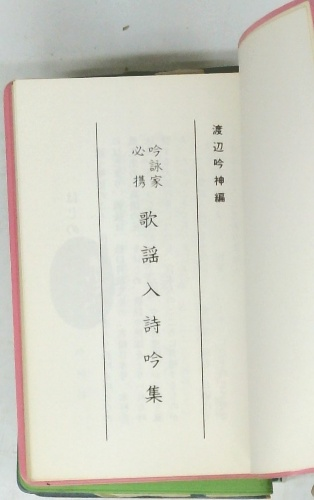 渡辺吟神編
吟詠家
必携
歌謡入詩吟集